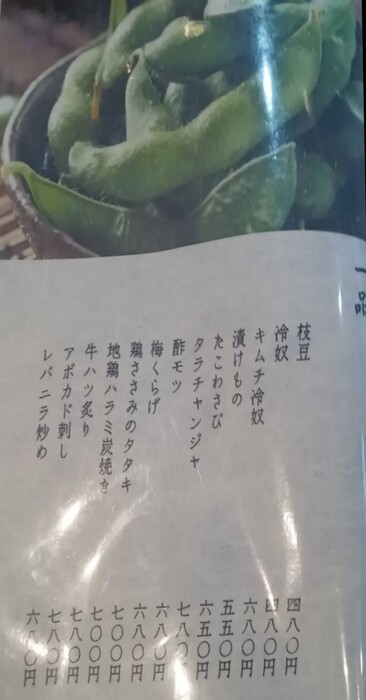 一品
枝豆 四八〇円
冷奴 四八〇円
キムチ冷奴 六八〇円
漬けもの 五五〇円
たこわさび 六五〇円
タラチャンジャ 七八〇円
酢モツ 六八〇円
梅くらげ 六八〇円
鶏ささみのタタキ 七〇〇円
地鶏ハラミ炭焼き 七〇〇円
牛ハツ炙り 七八〇円
アボカド刺し 七八〇円
レバニラ炒め 六八〇円